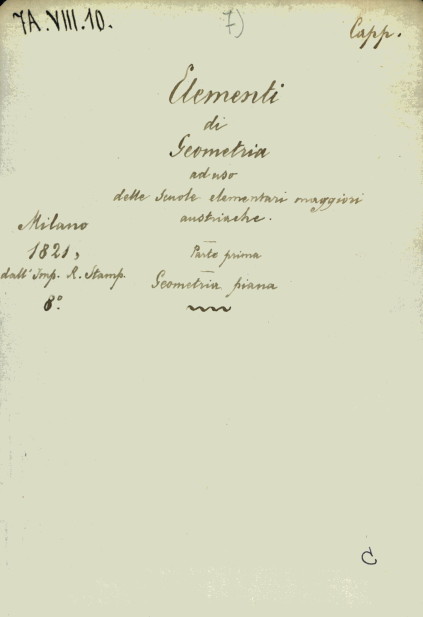 7A.VIII.10.
7)
Capp.
Elementi
di
Geometria
ad uso
delle Scuole elementari maggiori
austriache.
Milano
1821,
dall' Imp. R. Stamp.
8°.
Parte prima
Geometria piana
C